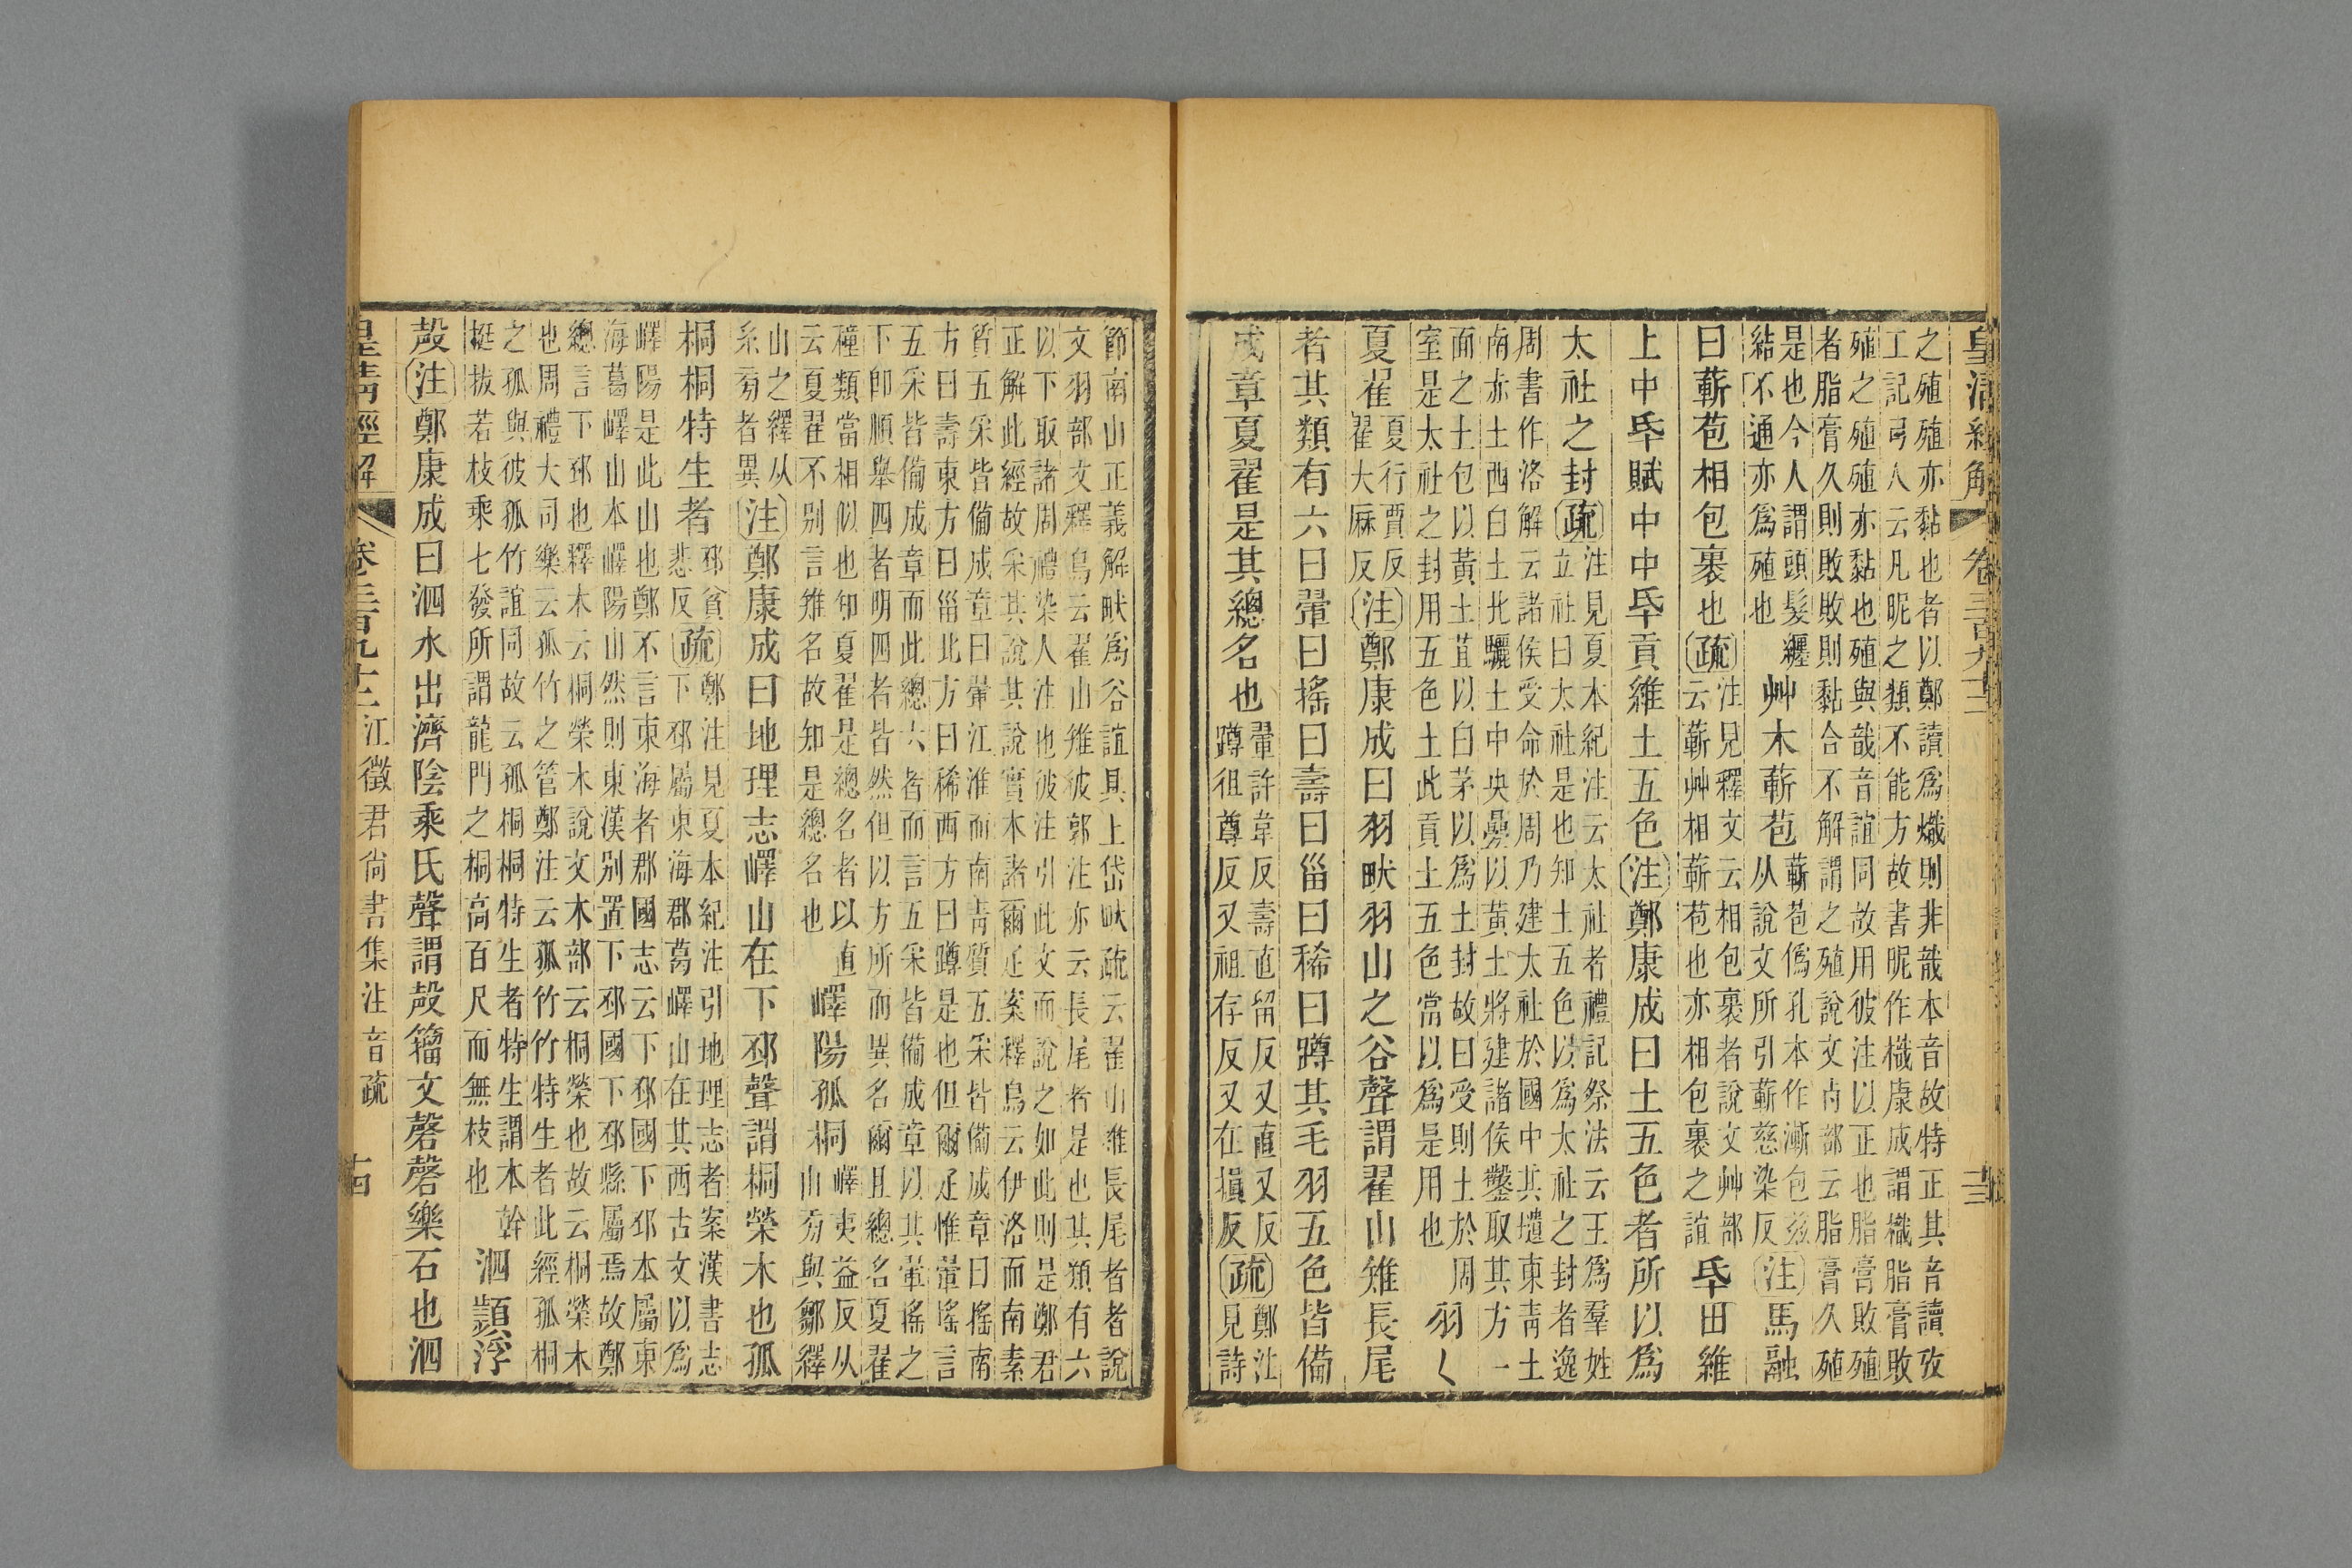 皇清經解 卷三百九十三 十三
之殖殖亦黏也者以鄭讀爲熾則非哉本音故特正其音讀攷
工記弓人云凡昵之類不能方故書昵作樴康成謂樴脂膏敗
殖之殖殖亦黏也殖與哉音誼同故用彼注以正也脂膏敗殖
者脂膏久則敗敗則黏合不解謂之殖說文歺部云脂膏久殖
是也今人謂頭髮纏
結不通亦爲殖也
艸木蔪苞
蔪苞僞孔本作漸包茲
从說文所引蔪慈染反
注馬融
曰蔪苞相包裹也疏
注見釋文云相包裹者說文艸部
云蔪艸相蔪苞也亦相包裹之誼
氒田維
上中氒賦中中氒貢維土五色注鄭康成曰土五色者所以爲
太社之封疏
注見夏本紀注云太社者禮記祭法云王爲羣姓
立社曰太社是也知土五色以爲太社之封者逸
周書作洛解云諸侯受命於周乃建太社於國中其壝東靑土
南赤土西白土北驪土中央疊以黃土將建諸侯鑿取其方一
面之土包以黃土苴以白茅以爲土封故曰受則土於周
室是太社之封用五色土此貢土五色當以爲是用也
羽〈
夏翟
夏行賈反
翟大麻反
注鄭康成曰羽畎羽山之谷聲謂翟山雉長尾
者其類有六曰翬曰搖曰壽曰甾曰稀曰蹲其毛羽五色皆備
成章夏翟是其總名也
翬許韋反壽直留反又直又反
蹲徂尊反又祖存反又在損反
疏
鄭注
見詩
節南山正義解畎爲谷誼具上岱畎疏云翟山雉長尾者者說
文羽部文釋鳥云翟山雉彼郭注亦云長尾者是也其類有六
以下取諸周禮染人注也彼注引此文而說之如此則是鄭君
正解此經故采其說其說實本諸爾疋案釋鳥云伊洛而南素
質五采皆備成章曰翬江淮而南靑質五采皆備成章曰搖南
方曰壽東方曰甾北方曰稀西方曰蹲是也但爾疋惟翬瑤言
五采皆備成章而此總六者而言五采皆備成章以其翬瑤之
下卽順舉四者明四者皆然但以方所而異名爾且總名夏翟
種類當相似也知夏翟是總名者以直
云夏翟不别言雉名故知是總名也
嶧陽孤桐
嶧夷益反从
山旁與鄒繹
山之繹从
糸旁者異
注鄭康成曰地理志嶧山在下邳聲謂桐榮木也孤
桐桐特生者
邳貧
悲反
疏
鄭注見夏本紀注引地理志者案漢書志
下邳屬東海郡葛嶧山在其西古文以爲
嶧陽是此山也鄭不言東海者郡國志云下邳國下邳本屬東
海葛嶧山本嶧陽山然則東漢别置下邳國下邳縣屬焉故鄭
總言下邳也釋木云桐榮木說文木部云桐榮也故云桐榮木
也周禮大司樂云孤竹之管鄭注云孤竹竹特生者此經孤桐
之孤與彼孤竹誼同故云孤桐桐特生者特生謂本榦
挺拔若枝乘七發所謂龍門之桐高百尺而無枝也
泗𩔳浮
殸注鄭康成曰泗水出濟陰乘氏聲謂殸籀文磬磬樂石也泗
皇清經解 卷三百九十三 江徵君尙書集注音疏 十四